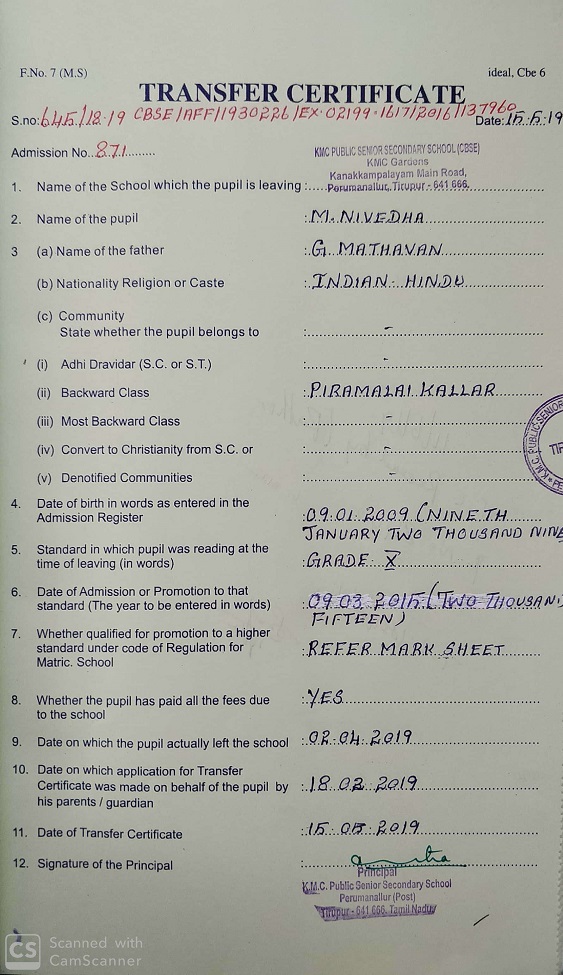 F.No. 7 (M.S) ideal, Cbe 6
TRANSFER CERTIFICATE
S.no: 645/18-19 CBSE/AFF/1930226/EX-02199-1617/2016/137960 Date: 15.5.19
Admission No. 871
KMC PUBLIC SENIOR SECONDARY SCHOOL (CBSE)
KMC Gardens
Kanakkampalayam Main Road,
1. Name of the School which the pupil is leaving : Perumanallur, Tirupur - 641 666.
2. Name of the pupil : M. NIVEDHA
3 (a) Name of the father : G. MATHAVAN
(b) Nationality Religion or Caste : INDIAN - HINDU
(c) Community
State whether the pupil belongs to : -
(i) Adhi Dravidar (S.C. or S.T.) : -
(ii) Backward Class : PIRAMALAI KALLAR
(iii) Most Backward Class : -
(iv) Convert to Christianity from S.C. or : -
(v) Denotified Communities : -
K.M.C. PUBLIC SENIOR
4. Date of birth in words as entered in the
Admission Register : 09.01.2009 (NINETH
JANUARY TWO THOUSAND NINE
5. Standard in which pupil was reading at the
time of leaving (in words) : GRADE X
6. Date of Admission or Promotion to that
standard (The year to be entered in words) : 09.03.2015 (TWO THOUSAND
FIFTEEN)
7. Whether qualified for promotion to a higher
standard under code of Regulation for : REFER MARK SHEET
Matric. School
8. Whether the pupil has paid all the fees due : YES
to the school
9. Date on which the pupil actually left the school : 02.04.2019
10. Date on which application for Transfer
Certificate was made on behalf of the pupil by : 18.02.2019
his parents / guardian
11. Date of Transfer Certificate : 15.05.2019
12. Signature of the Principal :
Principal
K.M.C. Public Senior Secondary School
Perumanallur (Post)
Tirupur - 641 666. Tamil Nadu
CS Scanned with
CamScanner